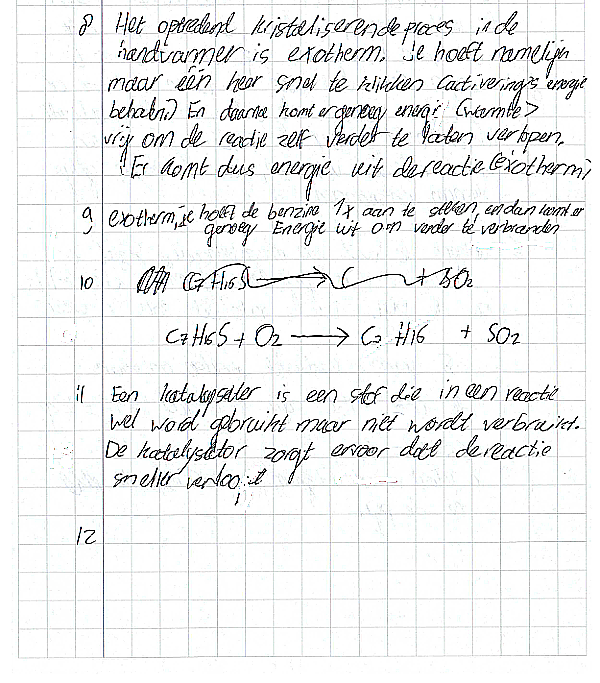 8 Het optredend kristaliserende proces in de
handwarmer is exotherm. Je hoeft namelijk
maar één keer snel te klikken (activerings energie
behalen) En daarna komt er genoeg energi (warmte)
vrij om de reactie zelf verder te laten verlopen.
Er komt dus energie uit de reactie (exotherm)
9 exotherm, je hoeft de benzine 1x aan te steken, en dan komt er
genoeg Energie uit om verder te verbranden
10 C7H16S → C + SO2
C7H16S + O2 → C7 H16 + SO2
11 Een katalysater is een stof die in een reactie
wel word gebruikt maar niet wordt verbruikt.
De katalysator zorgt ervoor dat de reactie
sneller verloopt
12